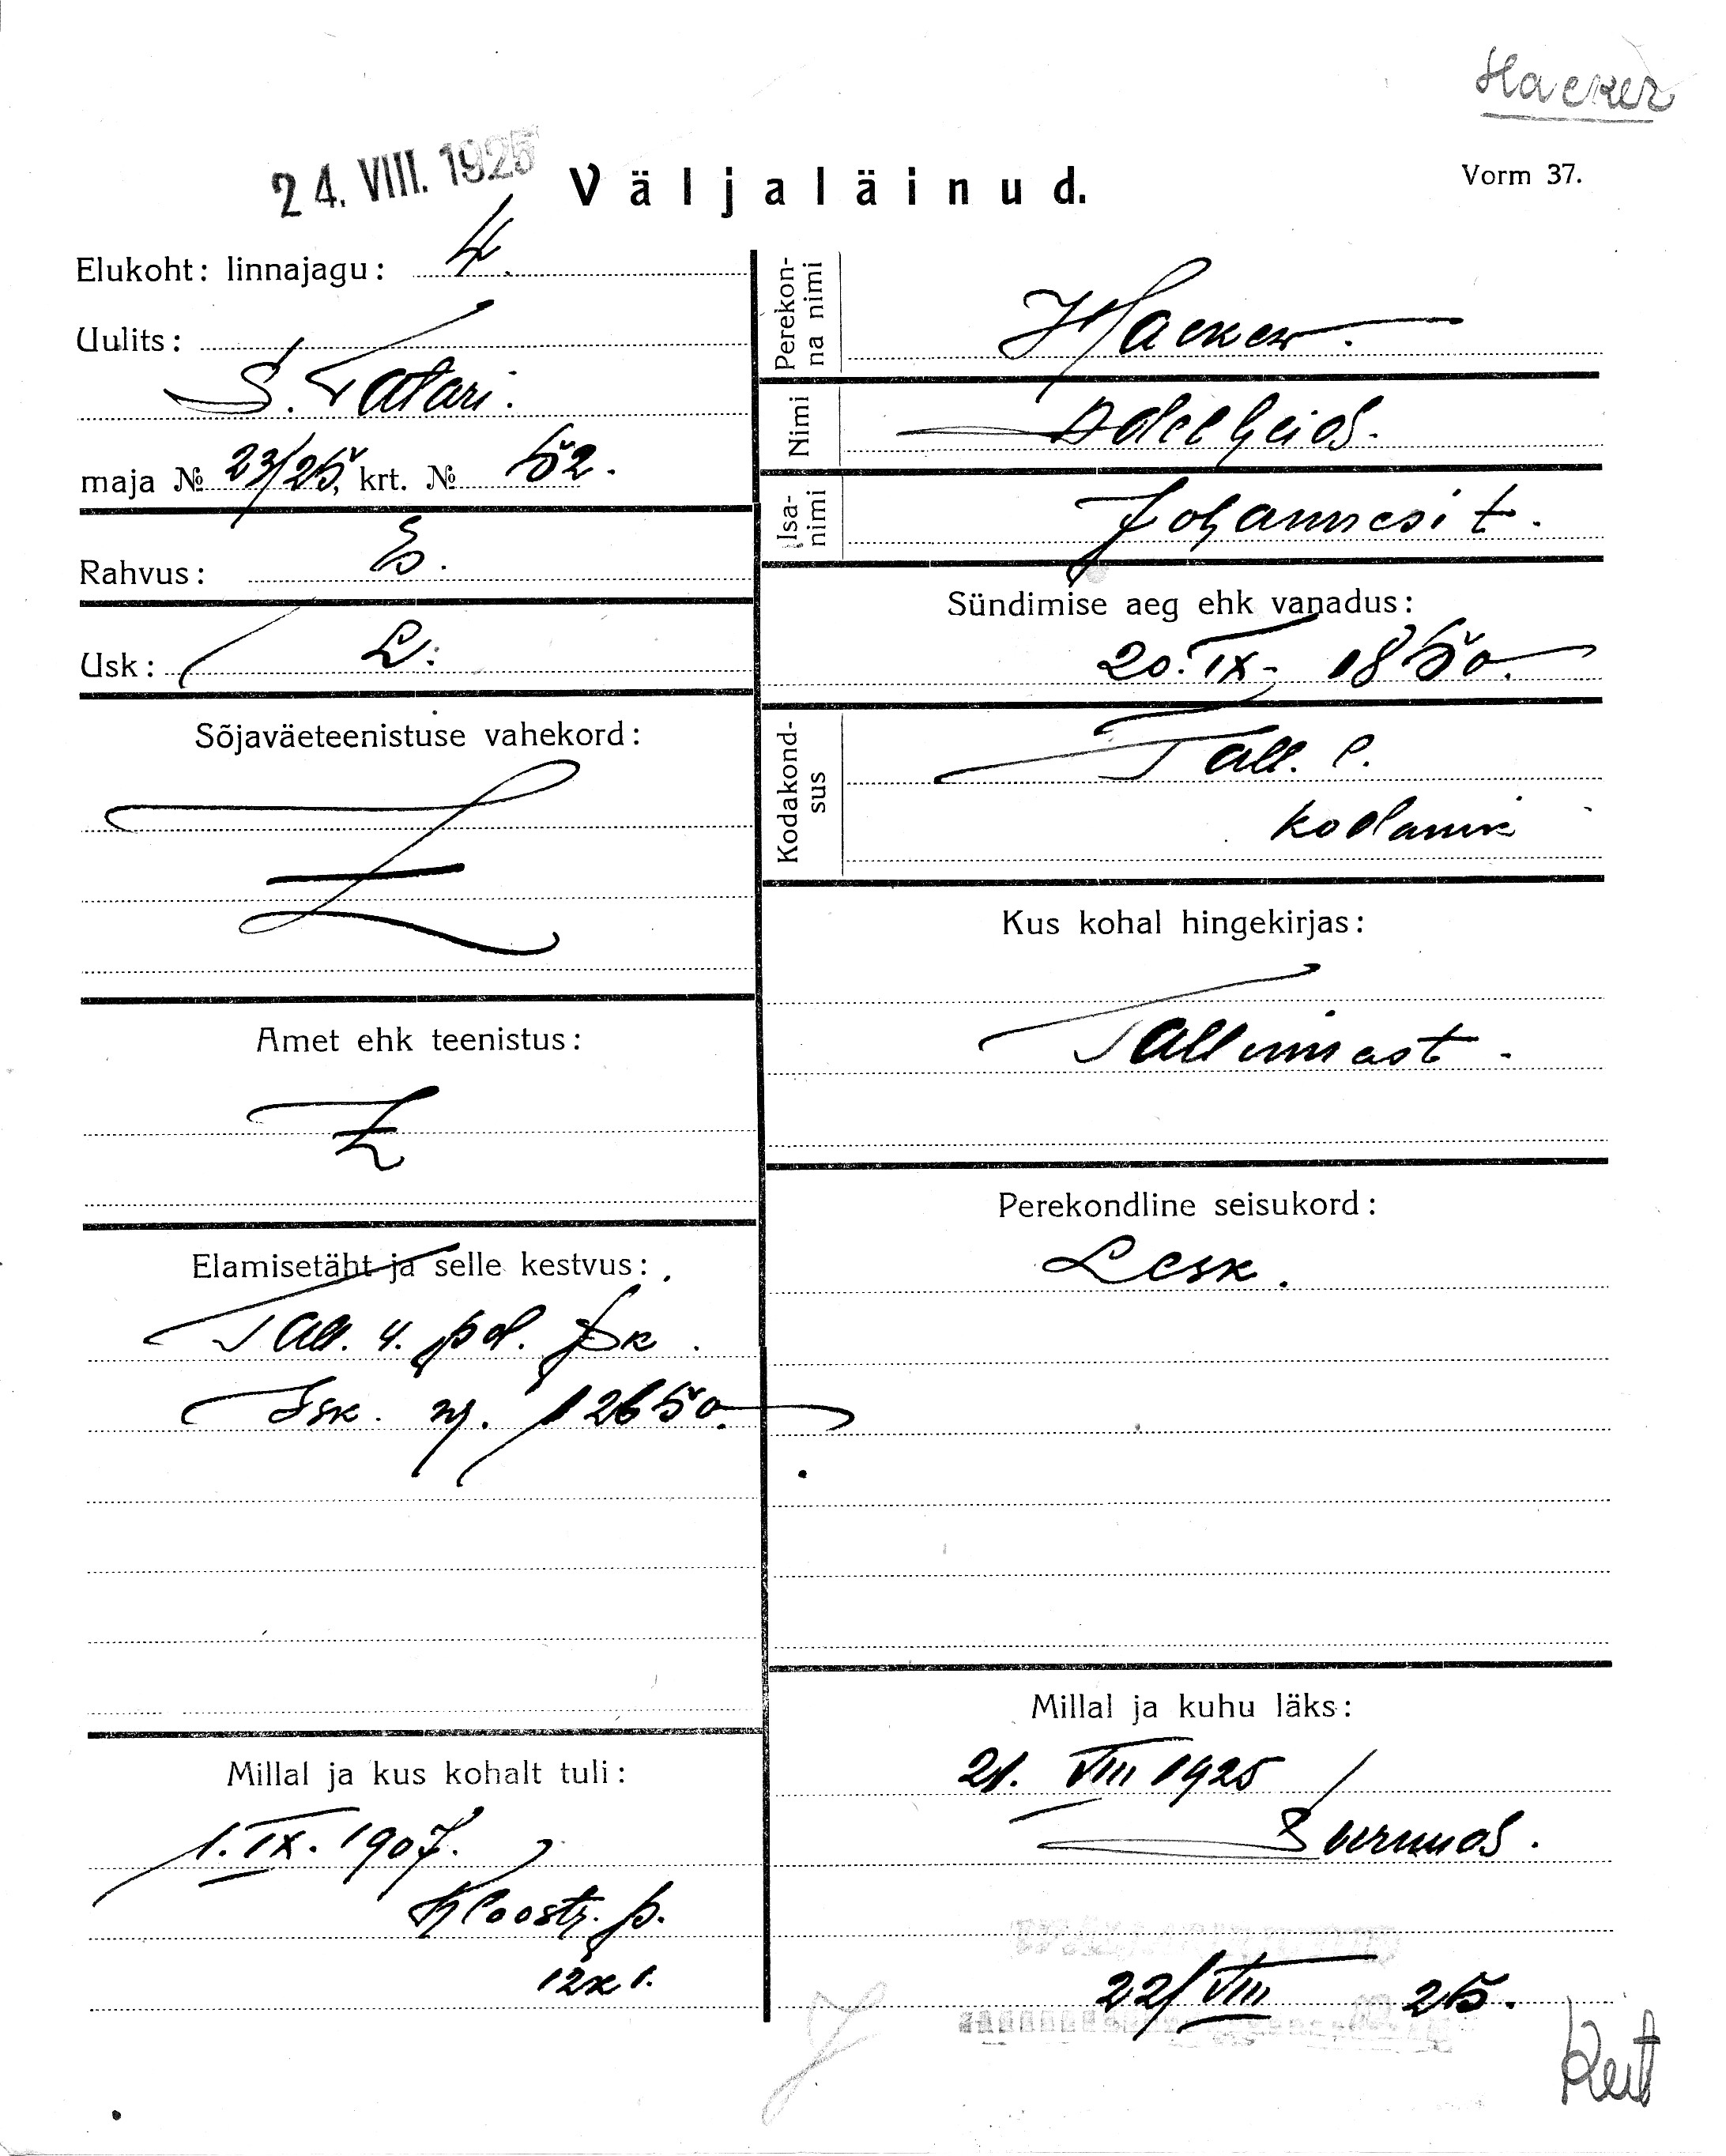 Hacker
24. VIII. 1925
Väljaläinud.
Vorm 37.
Elukoht: linnajagu: 4.
Uulits:
S. Tatari.
maja № 23/25, krt. № 52.
Rahvus: E.
Usk: L.
Sõjaväeteenistuse vahekord:
Amet ehk teenistus:
Elamisetäht ja selle kestvus:
Tall. 4. pol. jsk.
Isk. nr. 12650.
Millal ja kus kohalt tuli:
1. IX. 1907.
Kloostr. p.
12 k 1.
Perekonna nimi
Hacker.
Nimi
Adelheid.
Isanimi
Johannesi t.
Sündimise aeg ehk vanadus:
20. IX - 1850.
Kodakondsus
Tall. l.
kodanik
Kus kohal hingekirjas:
Tallinnast.
Perekondline seisukord:
Lesk.
Millal ja kuhu läks:
21. VIII 1925
Surnud.
22/VIII 25.